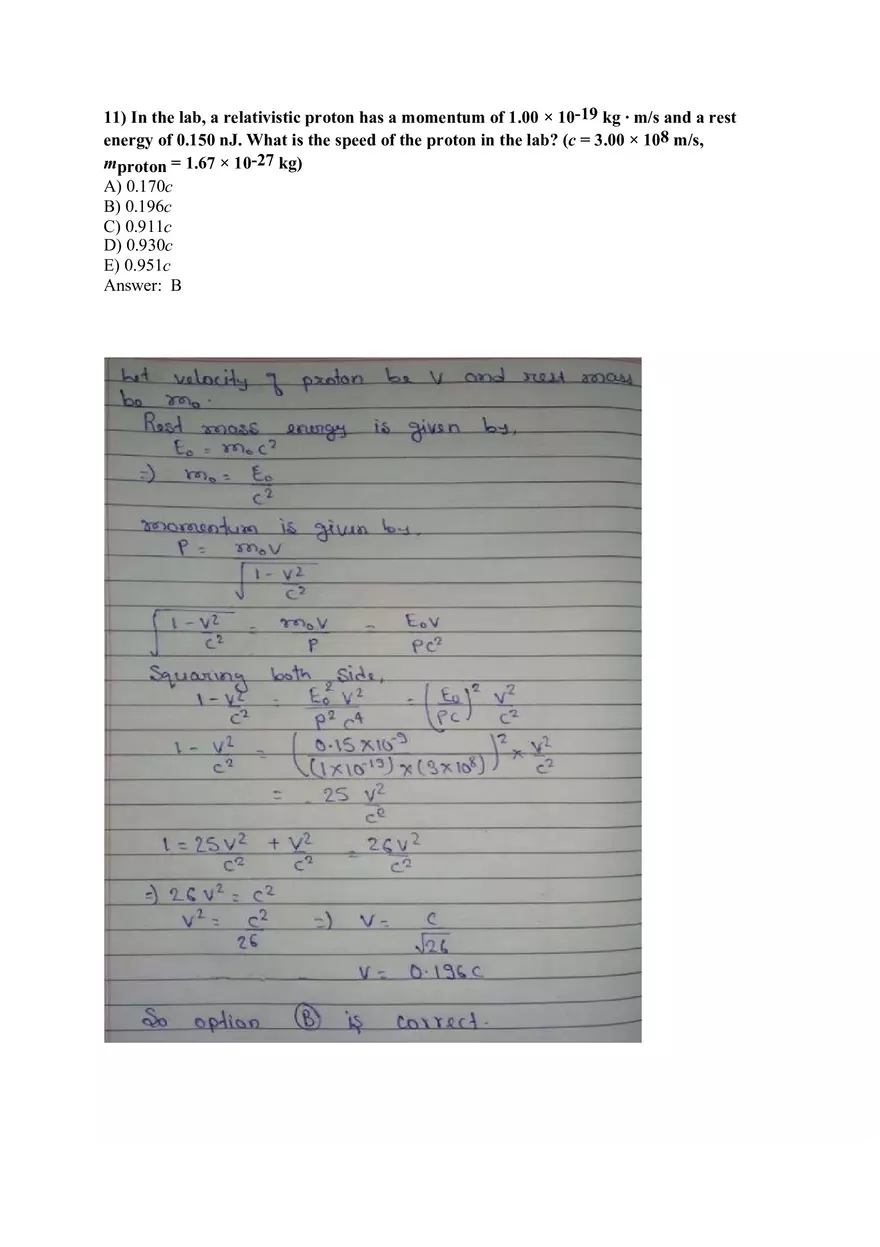 11) In the lab, a relativistic proton has a momentum of 1.00 × 10-19 kg · m/s and a rest
energy of 0.150 nJ. What is the speed of the proton in the lab? (c = 3.00 × 108 m/s,
mproton = 1.67 × 10-27 kg)
A) 0.170c
B) 0.196c
C) 0.911c
D) 0.930c
E) 0.951c
Answer: B
Let velocity of proton be v and rest mass
be m₀.
Rest mass energy is given by,
E₀ = m₀c²
=) m₀ = E₀/c²
momentum is given by,
P = m₀v/√(1 - v²/c²)
√(1 - v²/c²) = m₀v/P = E₀v/Pc²
Squaring both side,
1 - v²/c² = E₀² v²/P² c⁴ = (E₀/PC)² v²/c²
1 - v²/c² = (0.15 × 10⁻⁹/(1×10⁻¹⁹) × (3×10⁸))² × v²/c²
= 25 v²/c²
1 = 25v²/c² + v²/c² = 26v²/c²
=) 26 v² = c²
v² = c²/26 =) v = c/√26
v = 0.196c
So option (B) is correct.